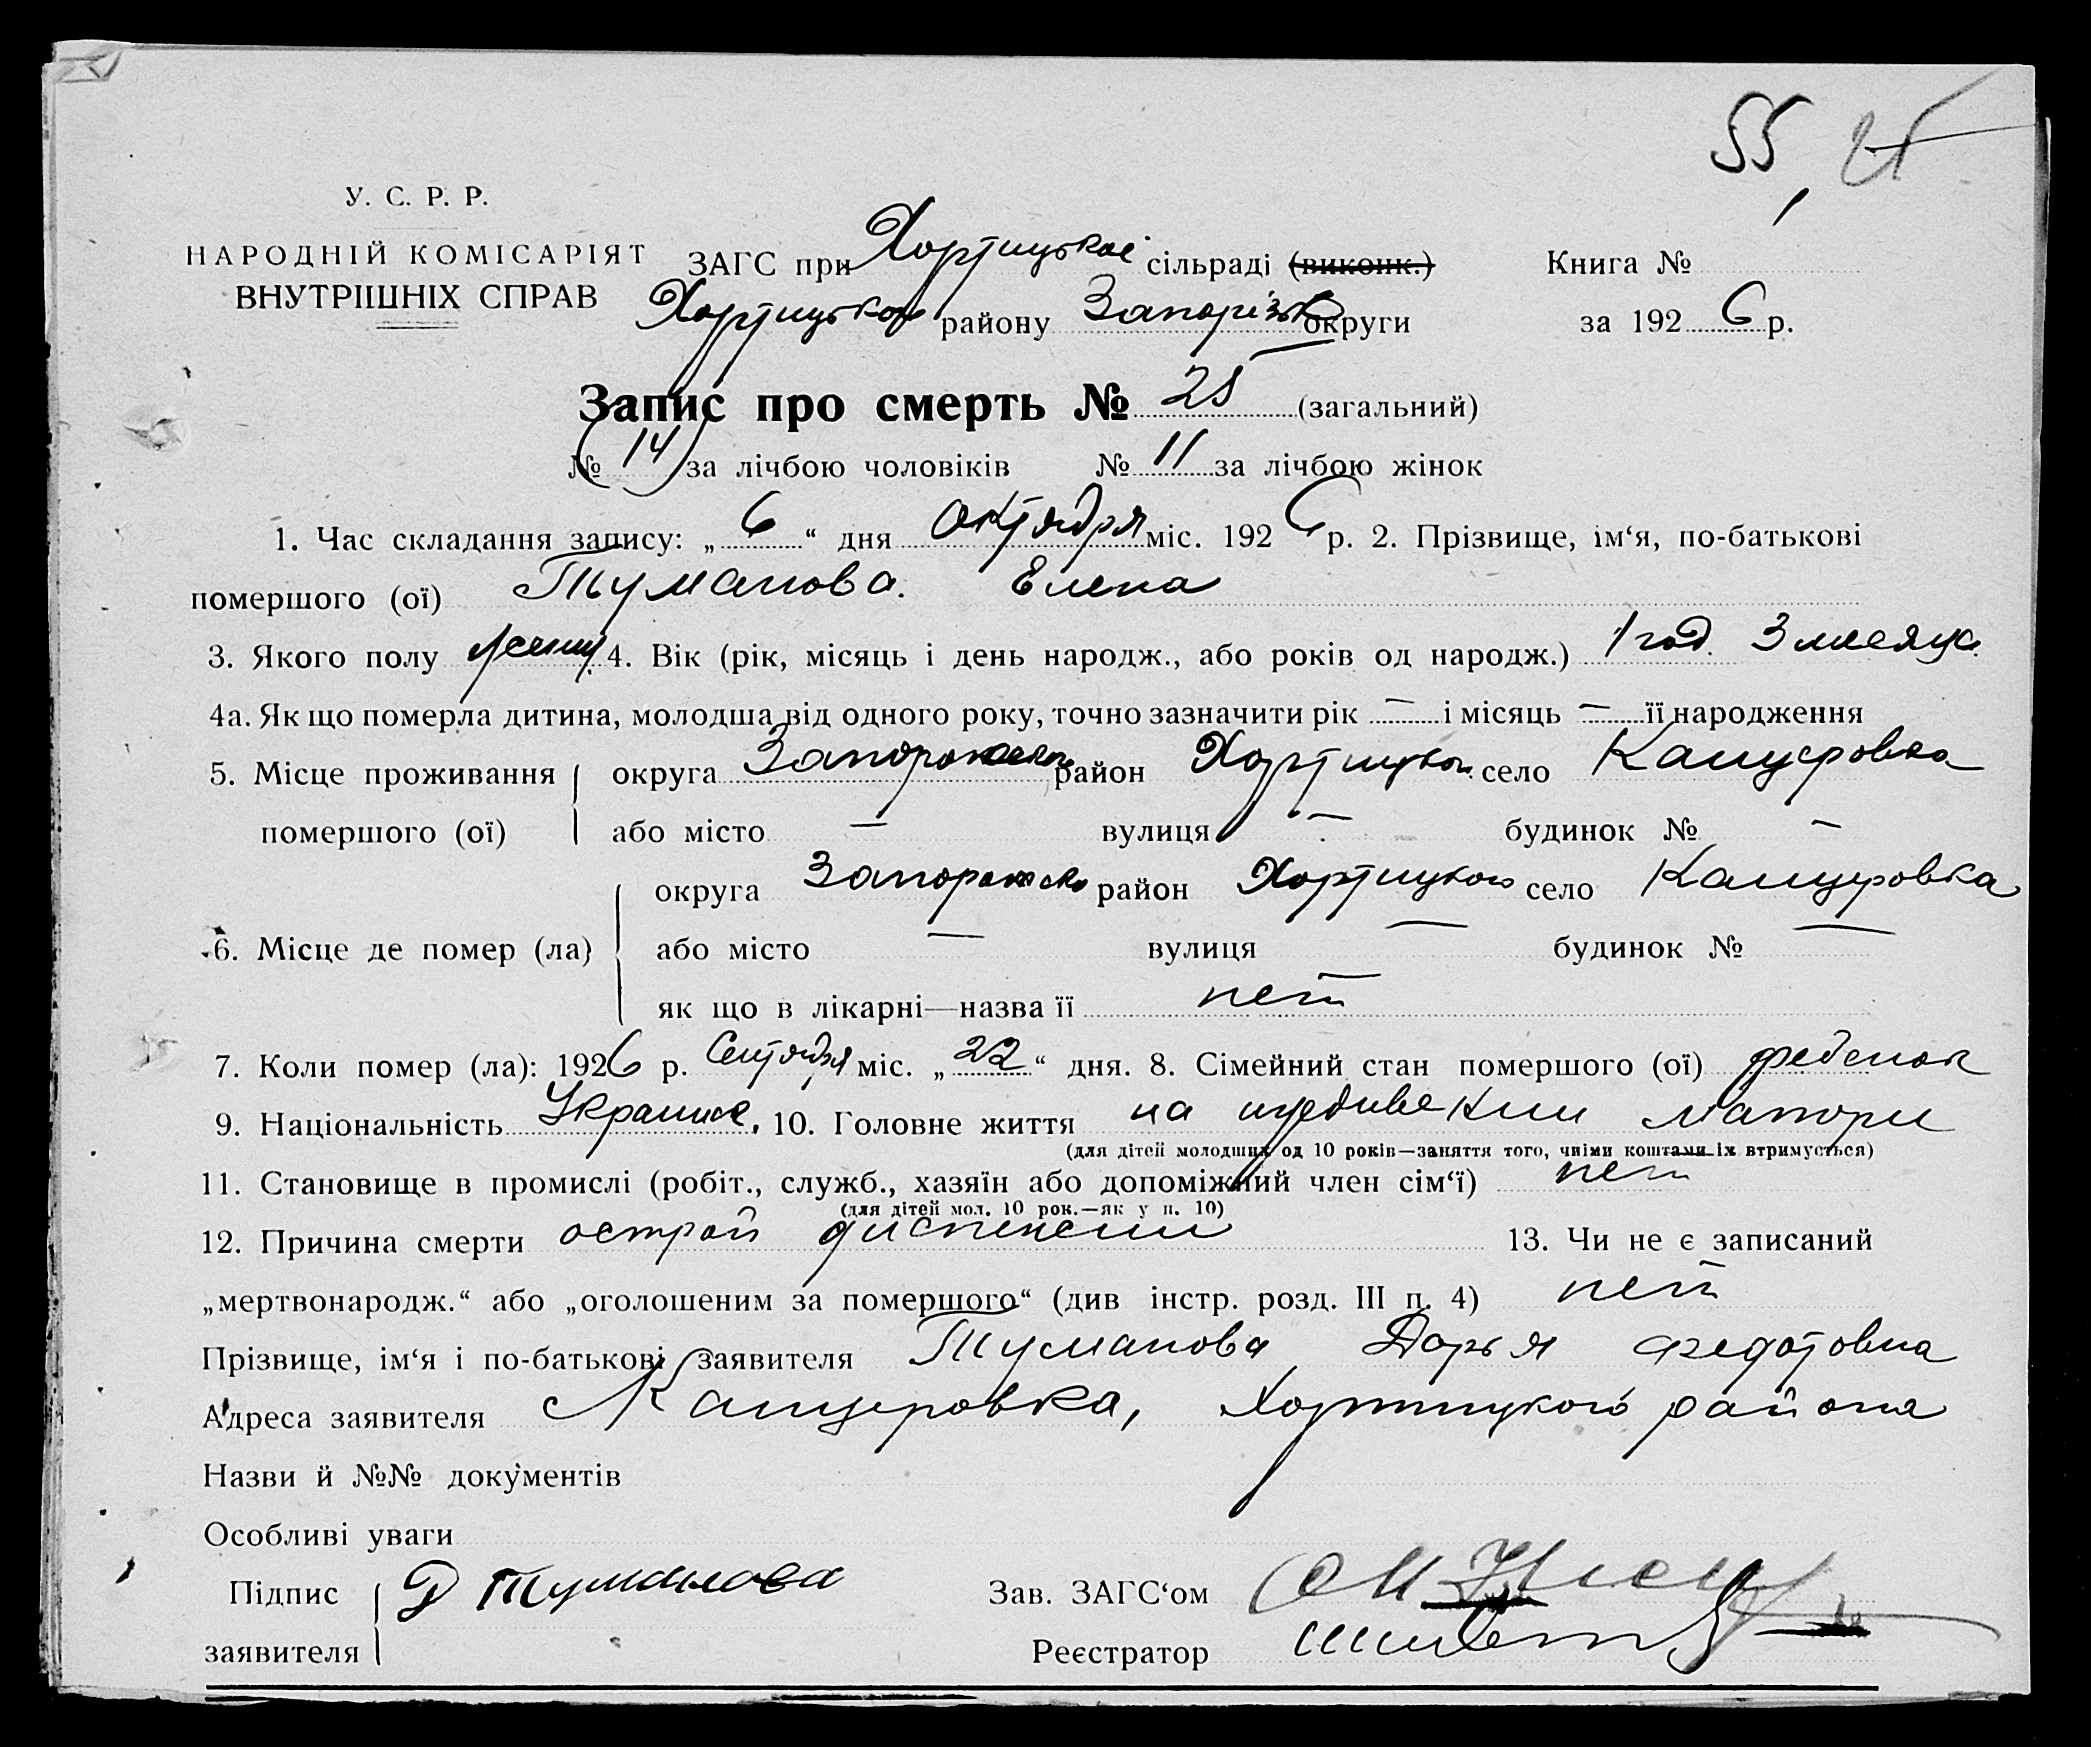 55
У. С. Р. Р.
НАРОДНІЙ КОМІСАРІЯТ
ВНУТРІШНІХ СПРАВ
ЗАГС при Хортицької сільраді (виконк.) Книга №
Хортицького району Запорізьк округи за 192 6 р.
Запис про смерть № 25 (загальний)
№ 14 за лічбою чоловіків № 11 за лічбою жінок
1. Час складання запису: „ 6 “ дня октября міс. 192 6 р. 2. Прізвище, ім‘я, по-батькові
помершого (ої) Туманова. Елена
3. Якого полу женск. 4. Вік (рік, місяць і день народж., або років од народж.) 1 год. 3 месяца
4а. Як що померла дитина, молодша від одного року, точно зазначити рік — і місяць — її народження
5. Місце проживання округа Запорожск район Хортицьк село Канцеровка
помершого (ої) або місто — вулиця — будинок № —
округа Запорожско район Хортицкого село Канцеровка
6. Місце де помер (ла) або місто — вулиця — будинок № —
як що в лікарні—назва її нет
7. Коли помер (ла): 1926 р. Сентября міс. „ 22 “ дня. 8. Сімейний стан помершого (ої) ребенок
9. Національність Украинс. 10. Головне життя на иждивении матери
(для дітей молодших од 10 років—заняття того, чиїми коштами їх втримується)
11. Становище в промислі (робіт., служб., хазяїн або допоміжний член сім‘ї) нет
(для дітей мол. 10 рок.—як у п. 10)
12. Причина смерти острой диспепсии 13. Чи не є записаний
„мертвонародж.“ або „оголошеним за помершого“ (див інстр. розд. III п. 4) нет
Прізвище, ім‘я і по-батькові заявителя Туманова Дарья Федотовна
Адреса заявителя Канцеровка, Хортицкого района
Назви й №№ документів
Особливі уваги
Підпис Д Туманова Зав. ЗАГС‘ом
заявителя Реєстратор